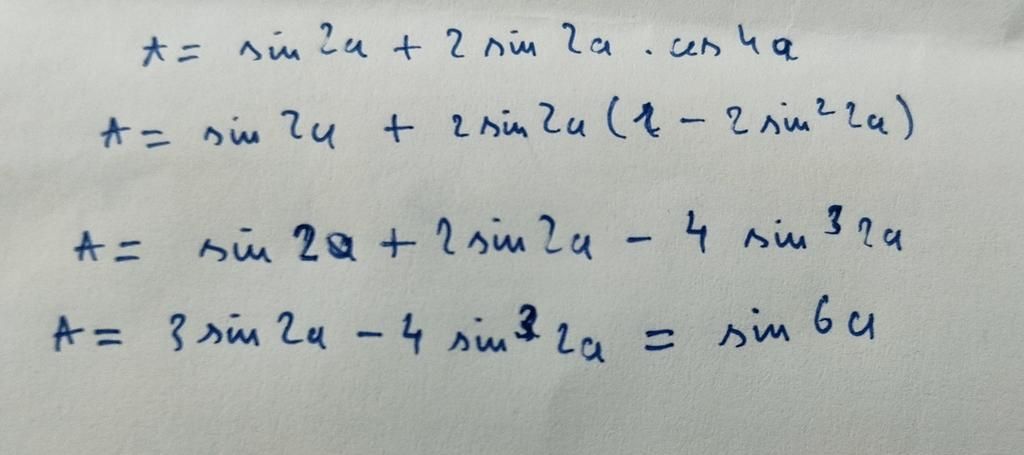 A = sin 2a + 2 sin 2a . cos 4a
A = sin 2a + 2 sin 2a (1 - 2 sin² 2a)
A = sin 2a + 2 sin 2a - 4 sin³ 2a
A = 3 sin 2a - 4 sin³ 2a = sin 6a